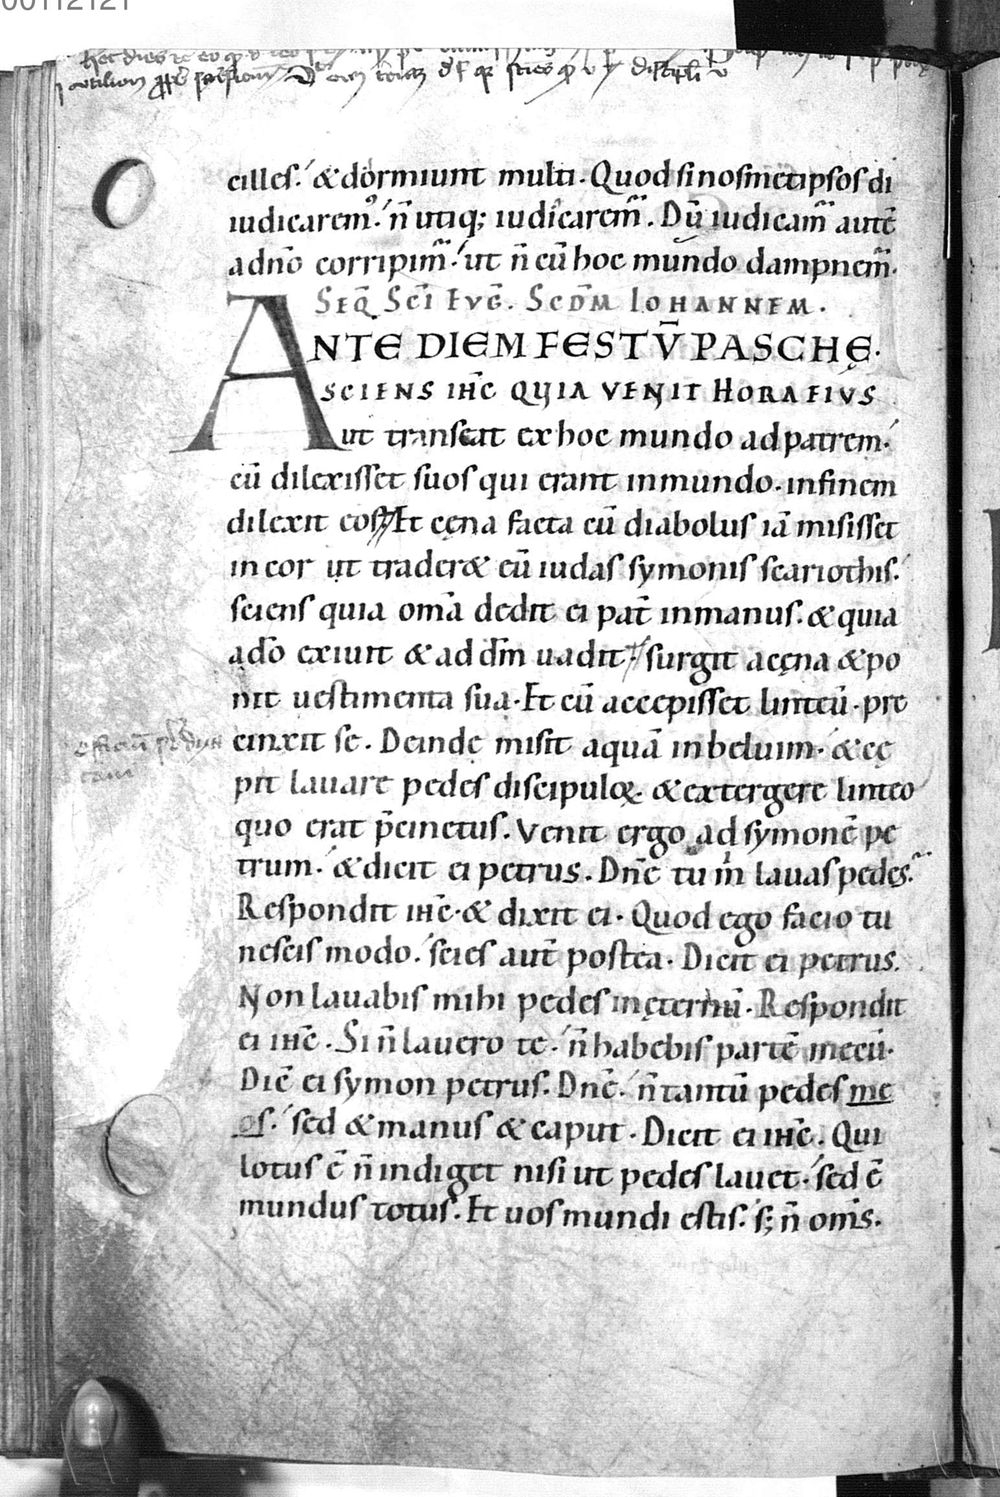 00112121
cilles. & dormiunt multi. Quod si nosmetipsos di
iudicarem'. n̄ utiq; iudicarem̄. Dū iudicam̄ autē
a dn̄o corripim̄. ut n̄ cū hoc mundo dampnem̄.
SEQ SC̄I EVḠ. SECDM̄ IOHANNEM.
ANTE DIEM FESTV̄ PASCHĘ.
SCIENS IHC̄ QUIA VENIT HORA EIVS
ut transeat ex hoc mundo ad patrem.
cū dilexisset suos qui erant in mundo. in finem
dilexit eos. Et cęna facta cū diabolus iā misisset
in cor ut trader& eū iudas symonis scariothis.
sciens quia om̄a dedit ei pat̄ in manus. & quia
a dō exiuit & ad dm̄ uadit. surgit a cęna & po
nit uestimenta sua. Et cū accepisset linteū. pre
cinxit se. Deindę misit aquā in beluim. & cę
pit lauare pedes discipuloꝝ. & extergere linteo
quo erat p̄cinctus. Venit ergo ad symonē pe
trum. & dicit ei petrus. Dn̄e tu m̄ lauas pedes.
Respondit ihc̄. & dixit ei. Quod ego facio tu
nescis modo. scies aut̄ postea. Dicit ei petrus.
Non lauabis mihi pedes in ęternū. Respondit
ei ihc̄. Si n̄ lauero te. n̄ habebis partē mecū.
Dic̄ ei symon petrus. Dn̄e. n̄ tantū pedes me
os. sed & manus & caput. Dicit ei ihc̄. Qui
lotus ē n̄ indiget nisi ut pedes lauet. sed ē
mundus totus. Et uos mundi estis. s; n̄ om̄s.